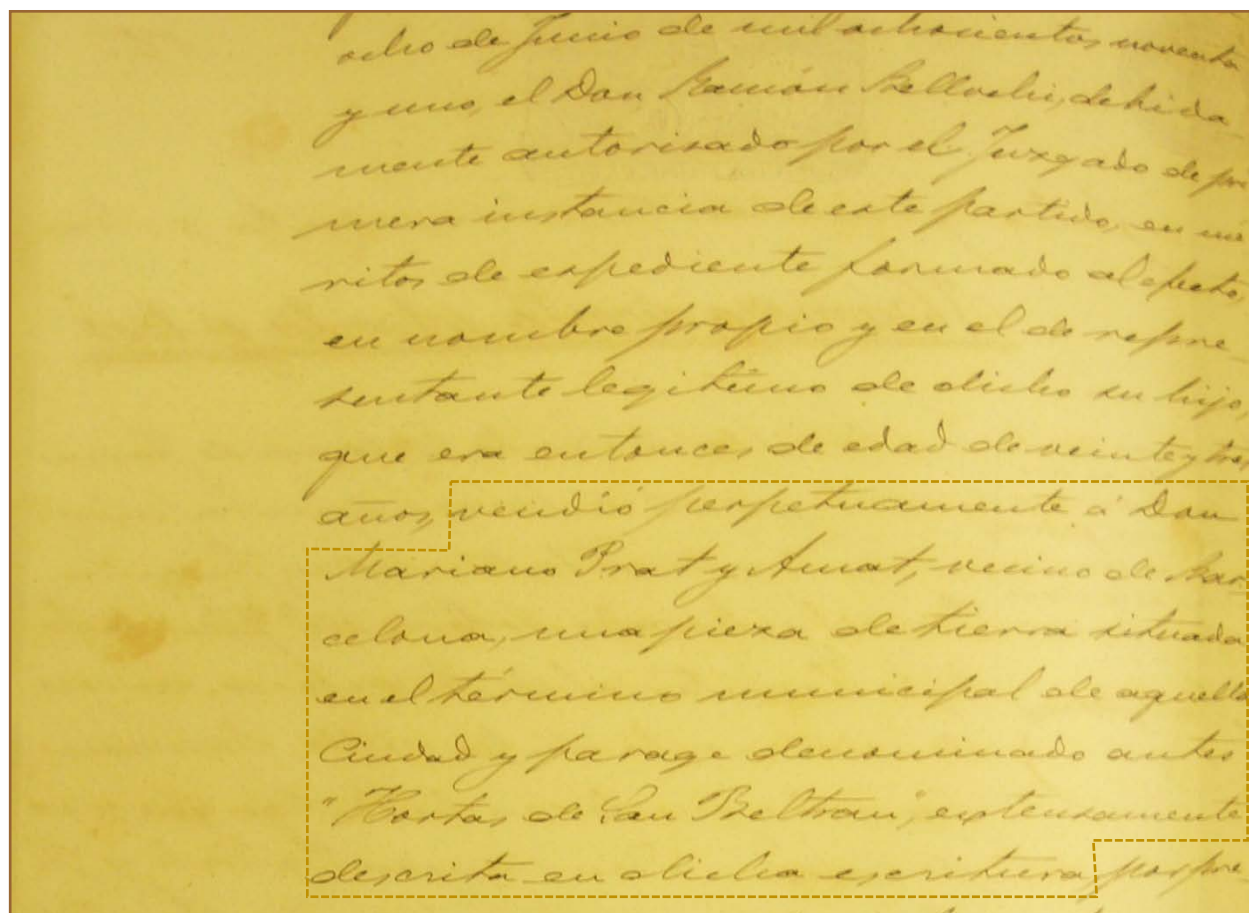 ocho de Junio de mil ochocientos noventa
y uno, el Don Ramón Bellvehi, debida
mente autorisado por el Juzgado de pri
mera instancia de este partido, en mé
ritos de expediente formado al efecto,
en nombre propio y en el de repre
sentante legitimo de dicho su hijo,
que era entonces de edad de veinte y tres
años, vendió perpetuamente á Don
Mariano Prat y Amat, vecino de Bar
celona, una pieza de tierra situada
en el término municipal de aquella
Ciudad y parage denominado antes
"Hortas de San Beltran", extensamente
descrita en dicha escritura, por pre